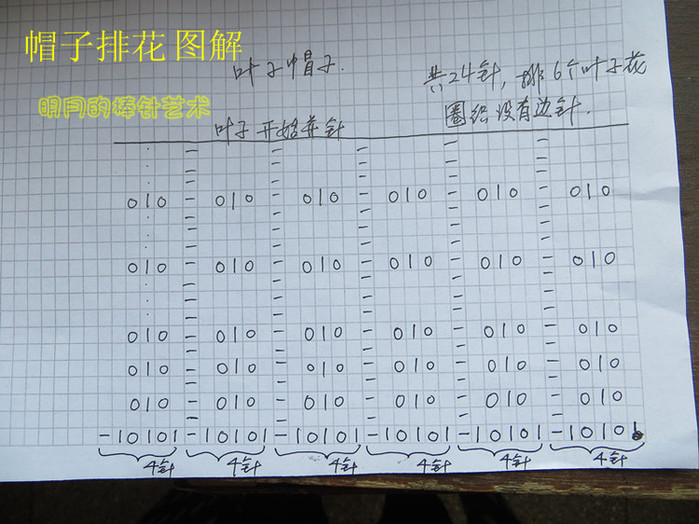 帽子排花 图解
叶子帽子. 共24针, 排6个叶子花
明月的棒针艺术
叶子开始并针 圈织没有边针.
010 - 010 - 010 - 010 - 010 - 010
010 - 010 - 010 - 010 - 010 - 010
010 - 010 - 010 - 010 - 010 - 010
010 - 010 - 010 - 010 - 010 - 010
010 - 010 - 010 - 010 - 010 - 010
-10101 -10101 -10101 -10101 -10101 -10101
4针 4针 4针 4针 4针 4针